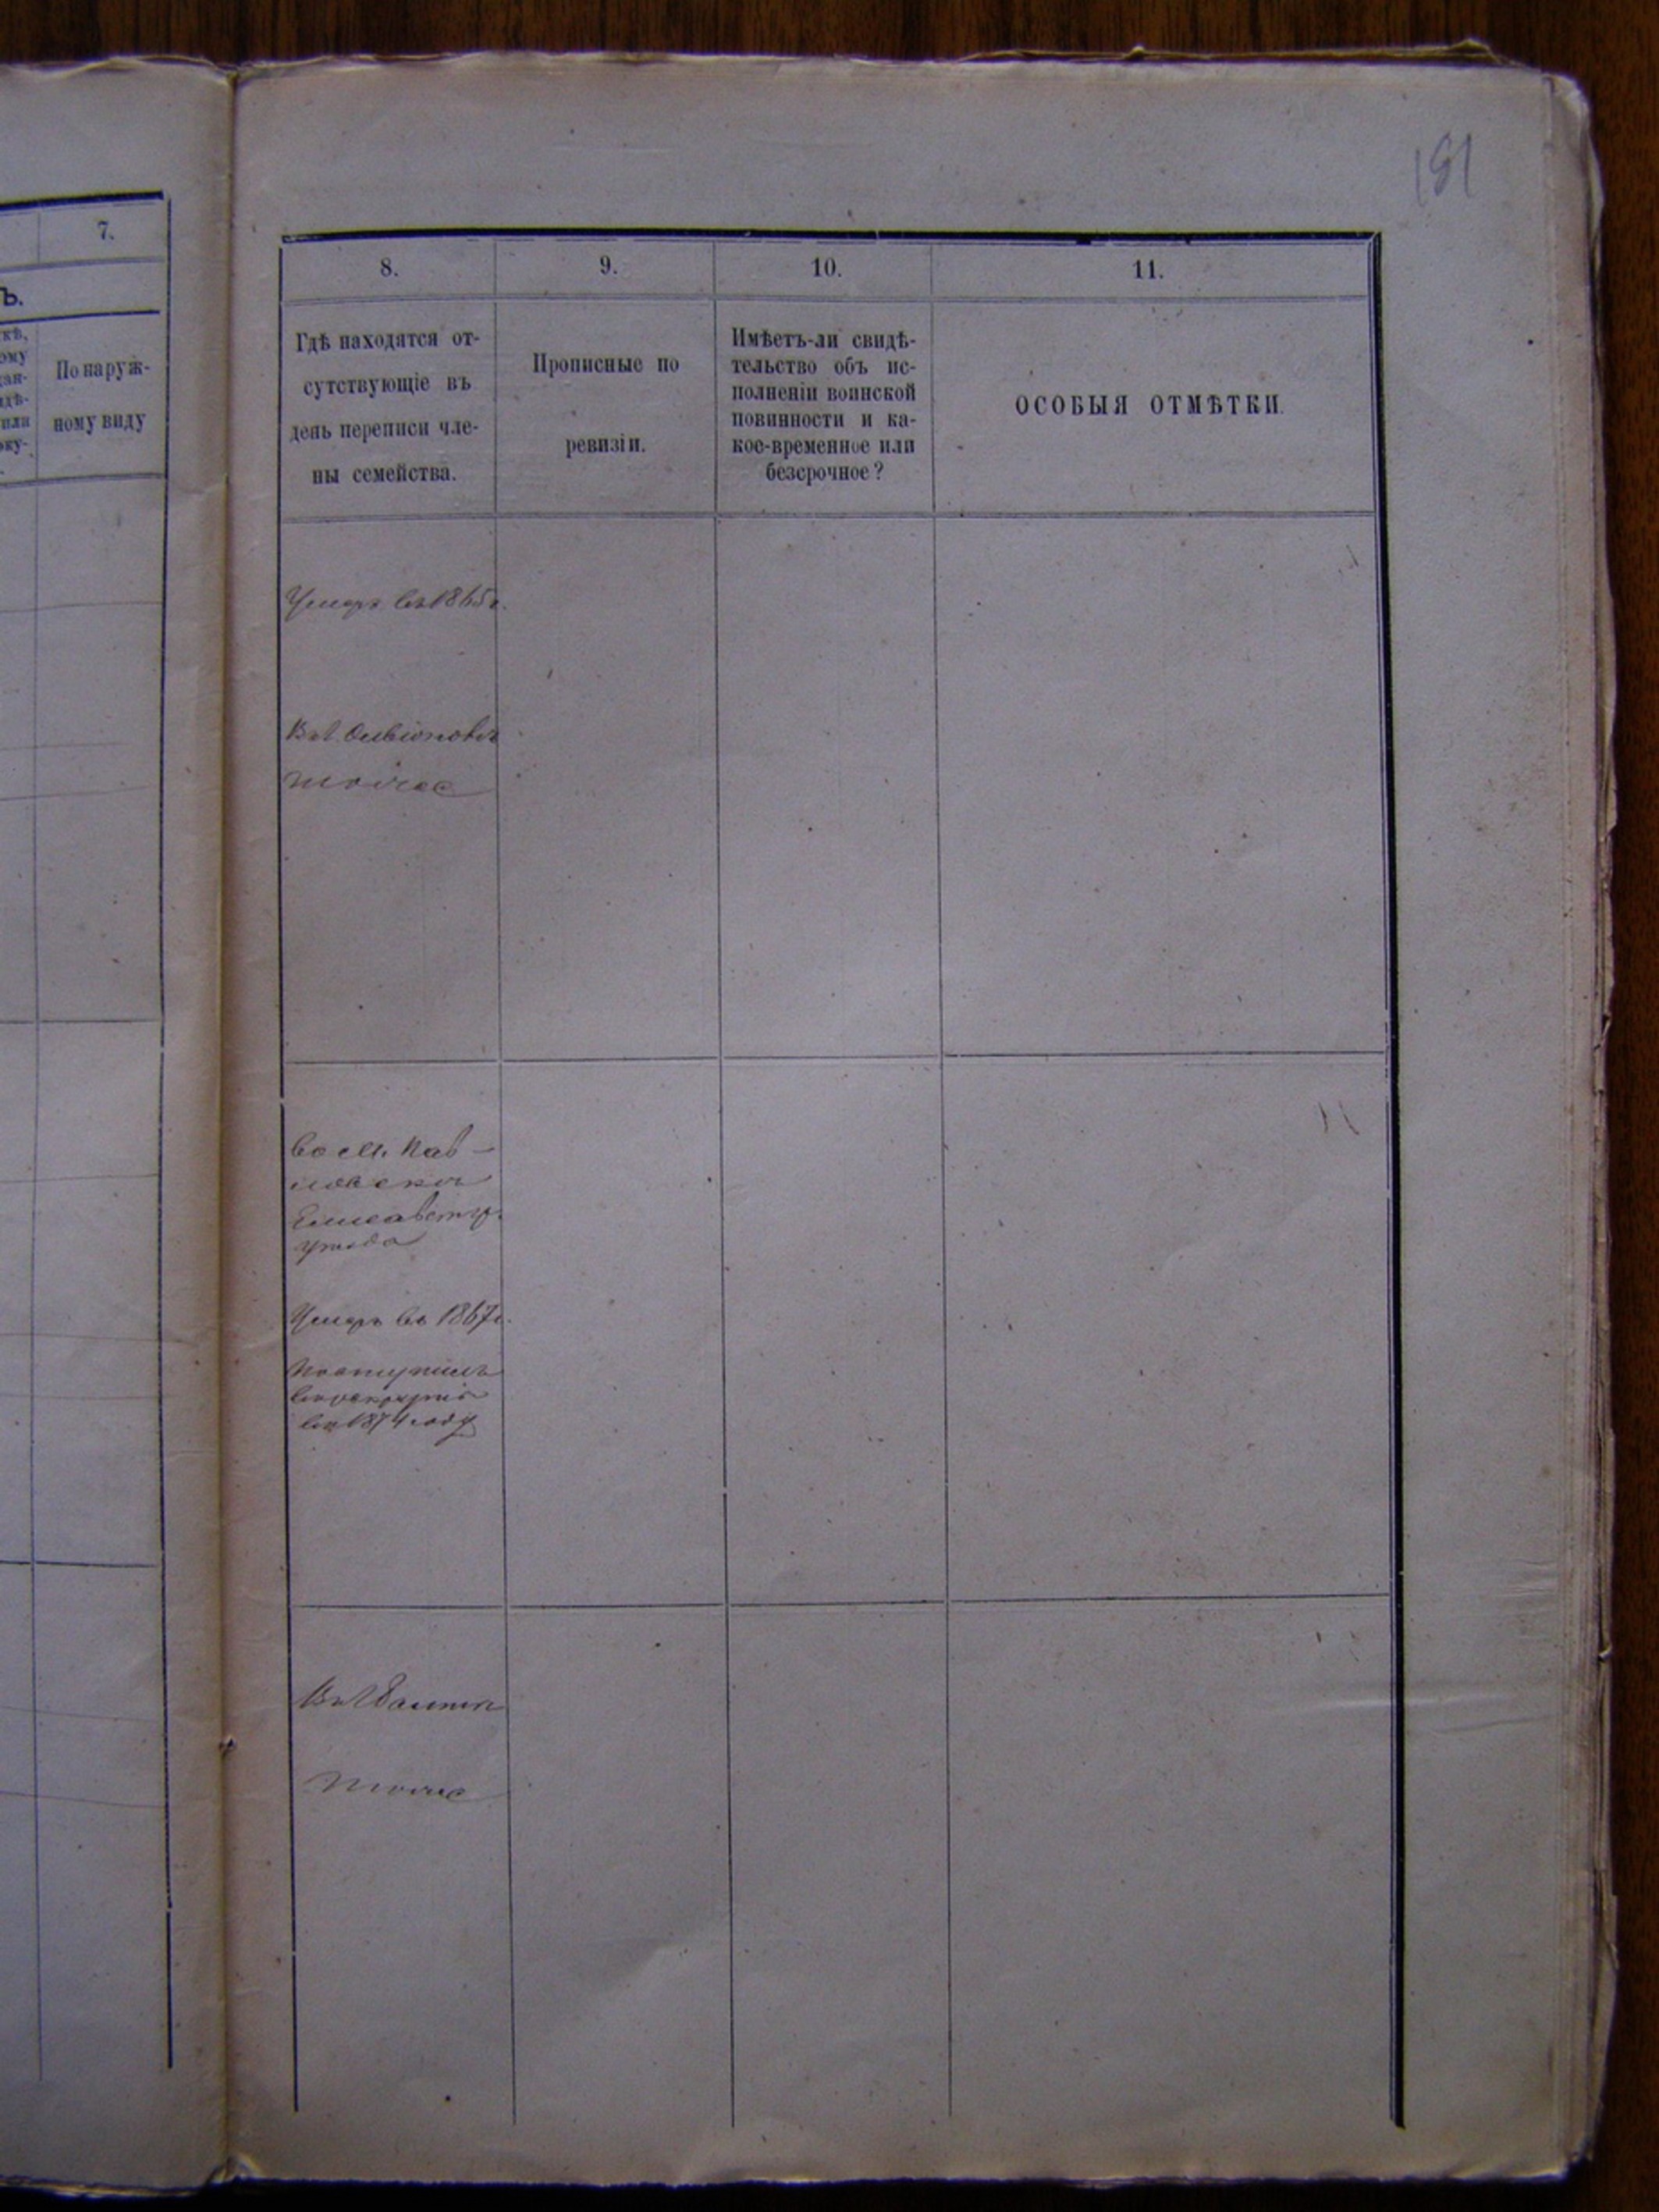 181
7.
Ъ.
По наруж-
ному виду
8.
9.
10.
11.
Гдѣ находятся от-
сутствующіе въ
день переписи чле-
ны семейства.
Прописные по
ревизіи.
Имѣетъ-ли свидѣ-
тельство объ ис-
полненіи воинской
повинности и ка-
кое-временное или
безсрочное?
ОСОБЫЯ ОТМѢТКИ.
Умеръ въ 1865 г.
В м.
тоже
Во м. Пав-
ловскъ
Елисаветгр.
уѣзда
Умеръ въ 1867 г.
Поступилъ
въ рекруты
въ 1874 году
тоже